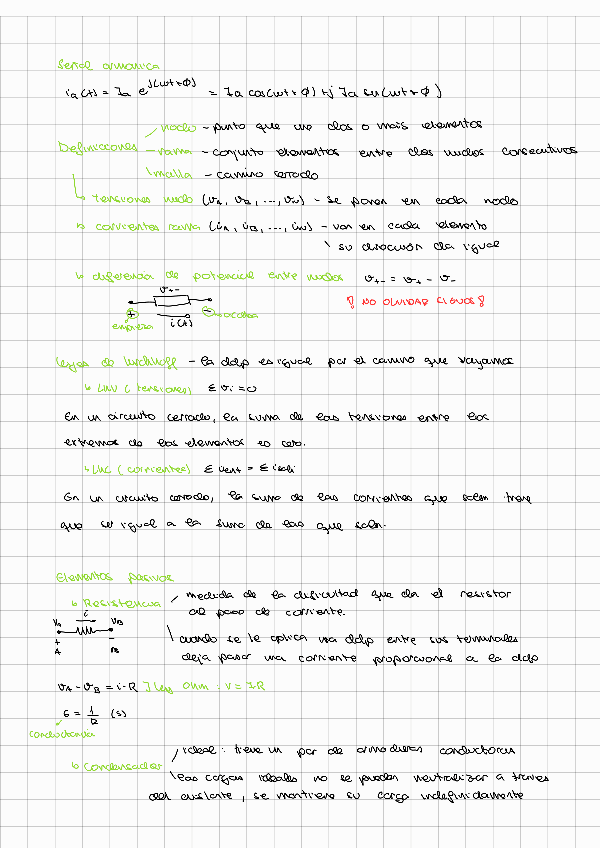 Señal armónica
i_a(t) = I_a e^{j(ωt+φ)} = I_a cos(ωt+φ) + j I_a sen(ωt+φ)
nodo - punto que une dos o más elementos
Definiciones - rama - conjunto elementos entre dos nudos consecutivos
malla - camino cerrado
↳ tensiones nudo (v_A, v_B, ..., v_N) - se ponen en cada nodo
↳ corrientes rama (i_A, i_B, ..., i_N) - van en cada elemento
\ su dirección da igual
↳ diferencia de potencial entre nudos v_{+-} = v_+ - v_-
v_{+-}
¡ NO OLVIDAR SIGNOS !
+ -
empieza i(t) acaba
Leyes de Kirchhoff - la ddp es igual por el camino que vayamos
↳ LKV (tensiones) Σ v_i = 0
En un circuito cerrado, la suma de las tensiones entre los
extremos de los elementos es cero.
↳ LKC (corrientes) Σ i_ent = Σ i_sali
En un circuito cerrado, la suma de las corrientes que salen tiene
que ser igual a la suma de las que salen.
Elementos pasivos
↳ Resistencia / medida de la dificultad que da el resistor
al paso de corriente.
V_A i V_B
+ -
A B
\ cuando se le aplica una ddp entre sus terminales
deja pasar una corriente proporcional a la ddp
v_A - v_B = i·R ] Ley Ohm : V = I·R
G = 1/R (S)
conductancia
/ ideal : tiene un par de armaduras conductoras
↳ Condensador \ las cargas ideales no se pueden neutralizar a traves
del aislante, se mantiene su carga indefinidamente